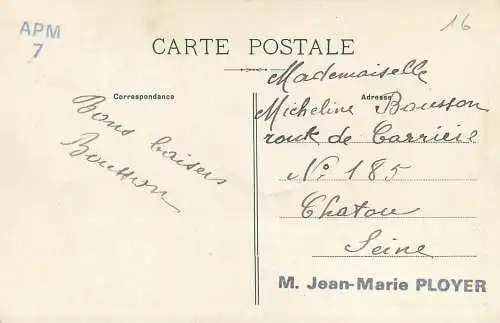 APM
7
16
CARTE POSTALE
Correspondance
Adresse
Bons baisers
Bousson
Mademoiselle
Micheline Bousson
route de Carrière
N° 185
Chatou
Seine
M. Jean-Marie PLOYER